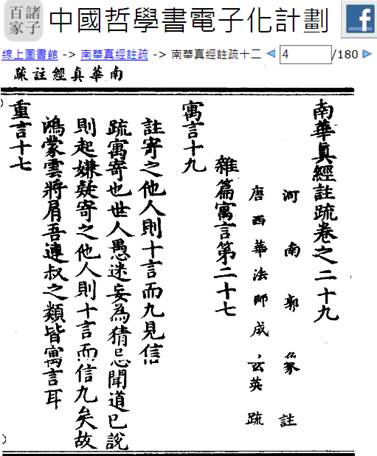 諸子百家 中國哲學書電子化計劃
線上圖書館 -> 南華真經註疏 -> 南華真經註疏十二 4 /180
南華真經註疏
南華真經註疏卷之二十九
河南郭象註
唐西華法師成玄英疏
雜篇寓言第二十七
寓言十九
註寄之他人則十言而九見信
疏寓寄也世人愚迷妄為猜忌聞道已說
則起嫌疑寄之他人則十言而信九矣故
鴻蒙雲將肩吾連叔之類皆寓言耳
重言十七